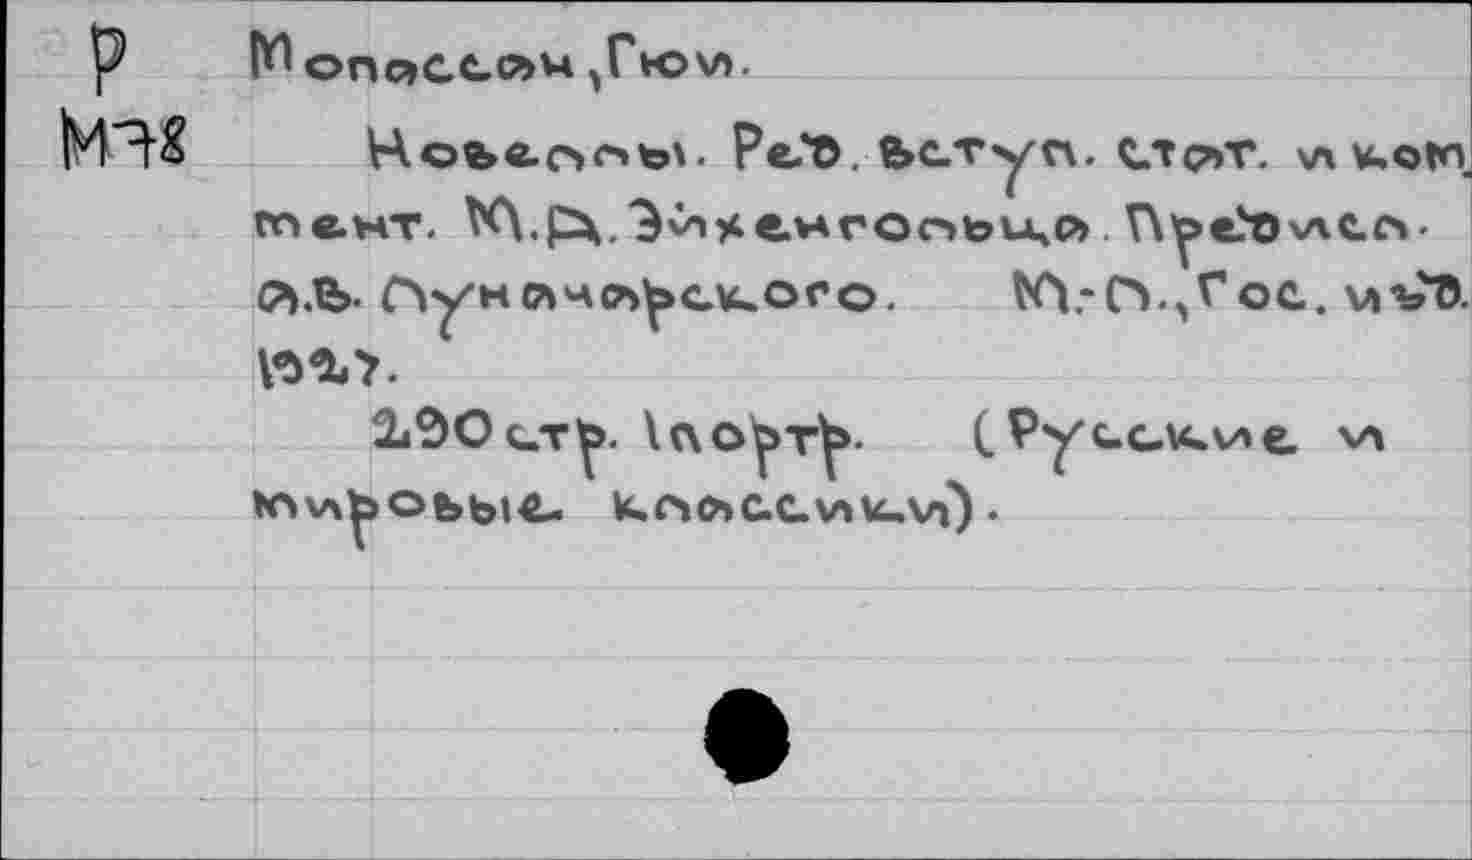 Р Мопассан, Гюи.
М78 Новеллы. Ред. вступ. стат. и ком-
мент. М.Д. Эйхенгольца. Предисл.
А.В. Луначарского. М.-Л., Гос. изд.
1927.
290 стр. 1 портр. (Русские и
мировые классики).